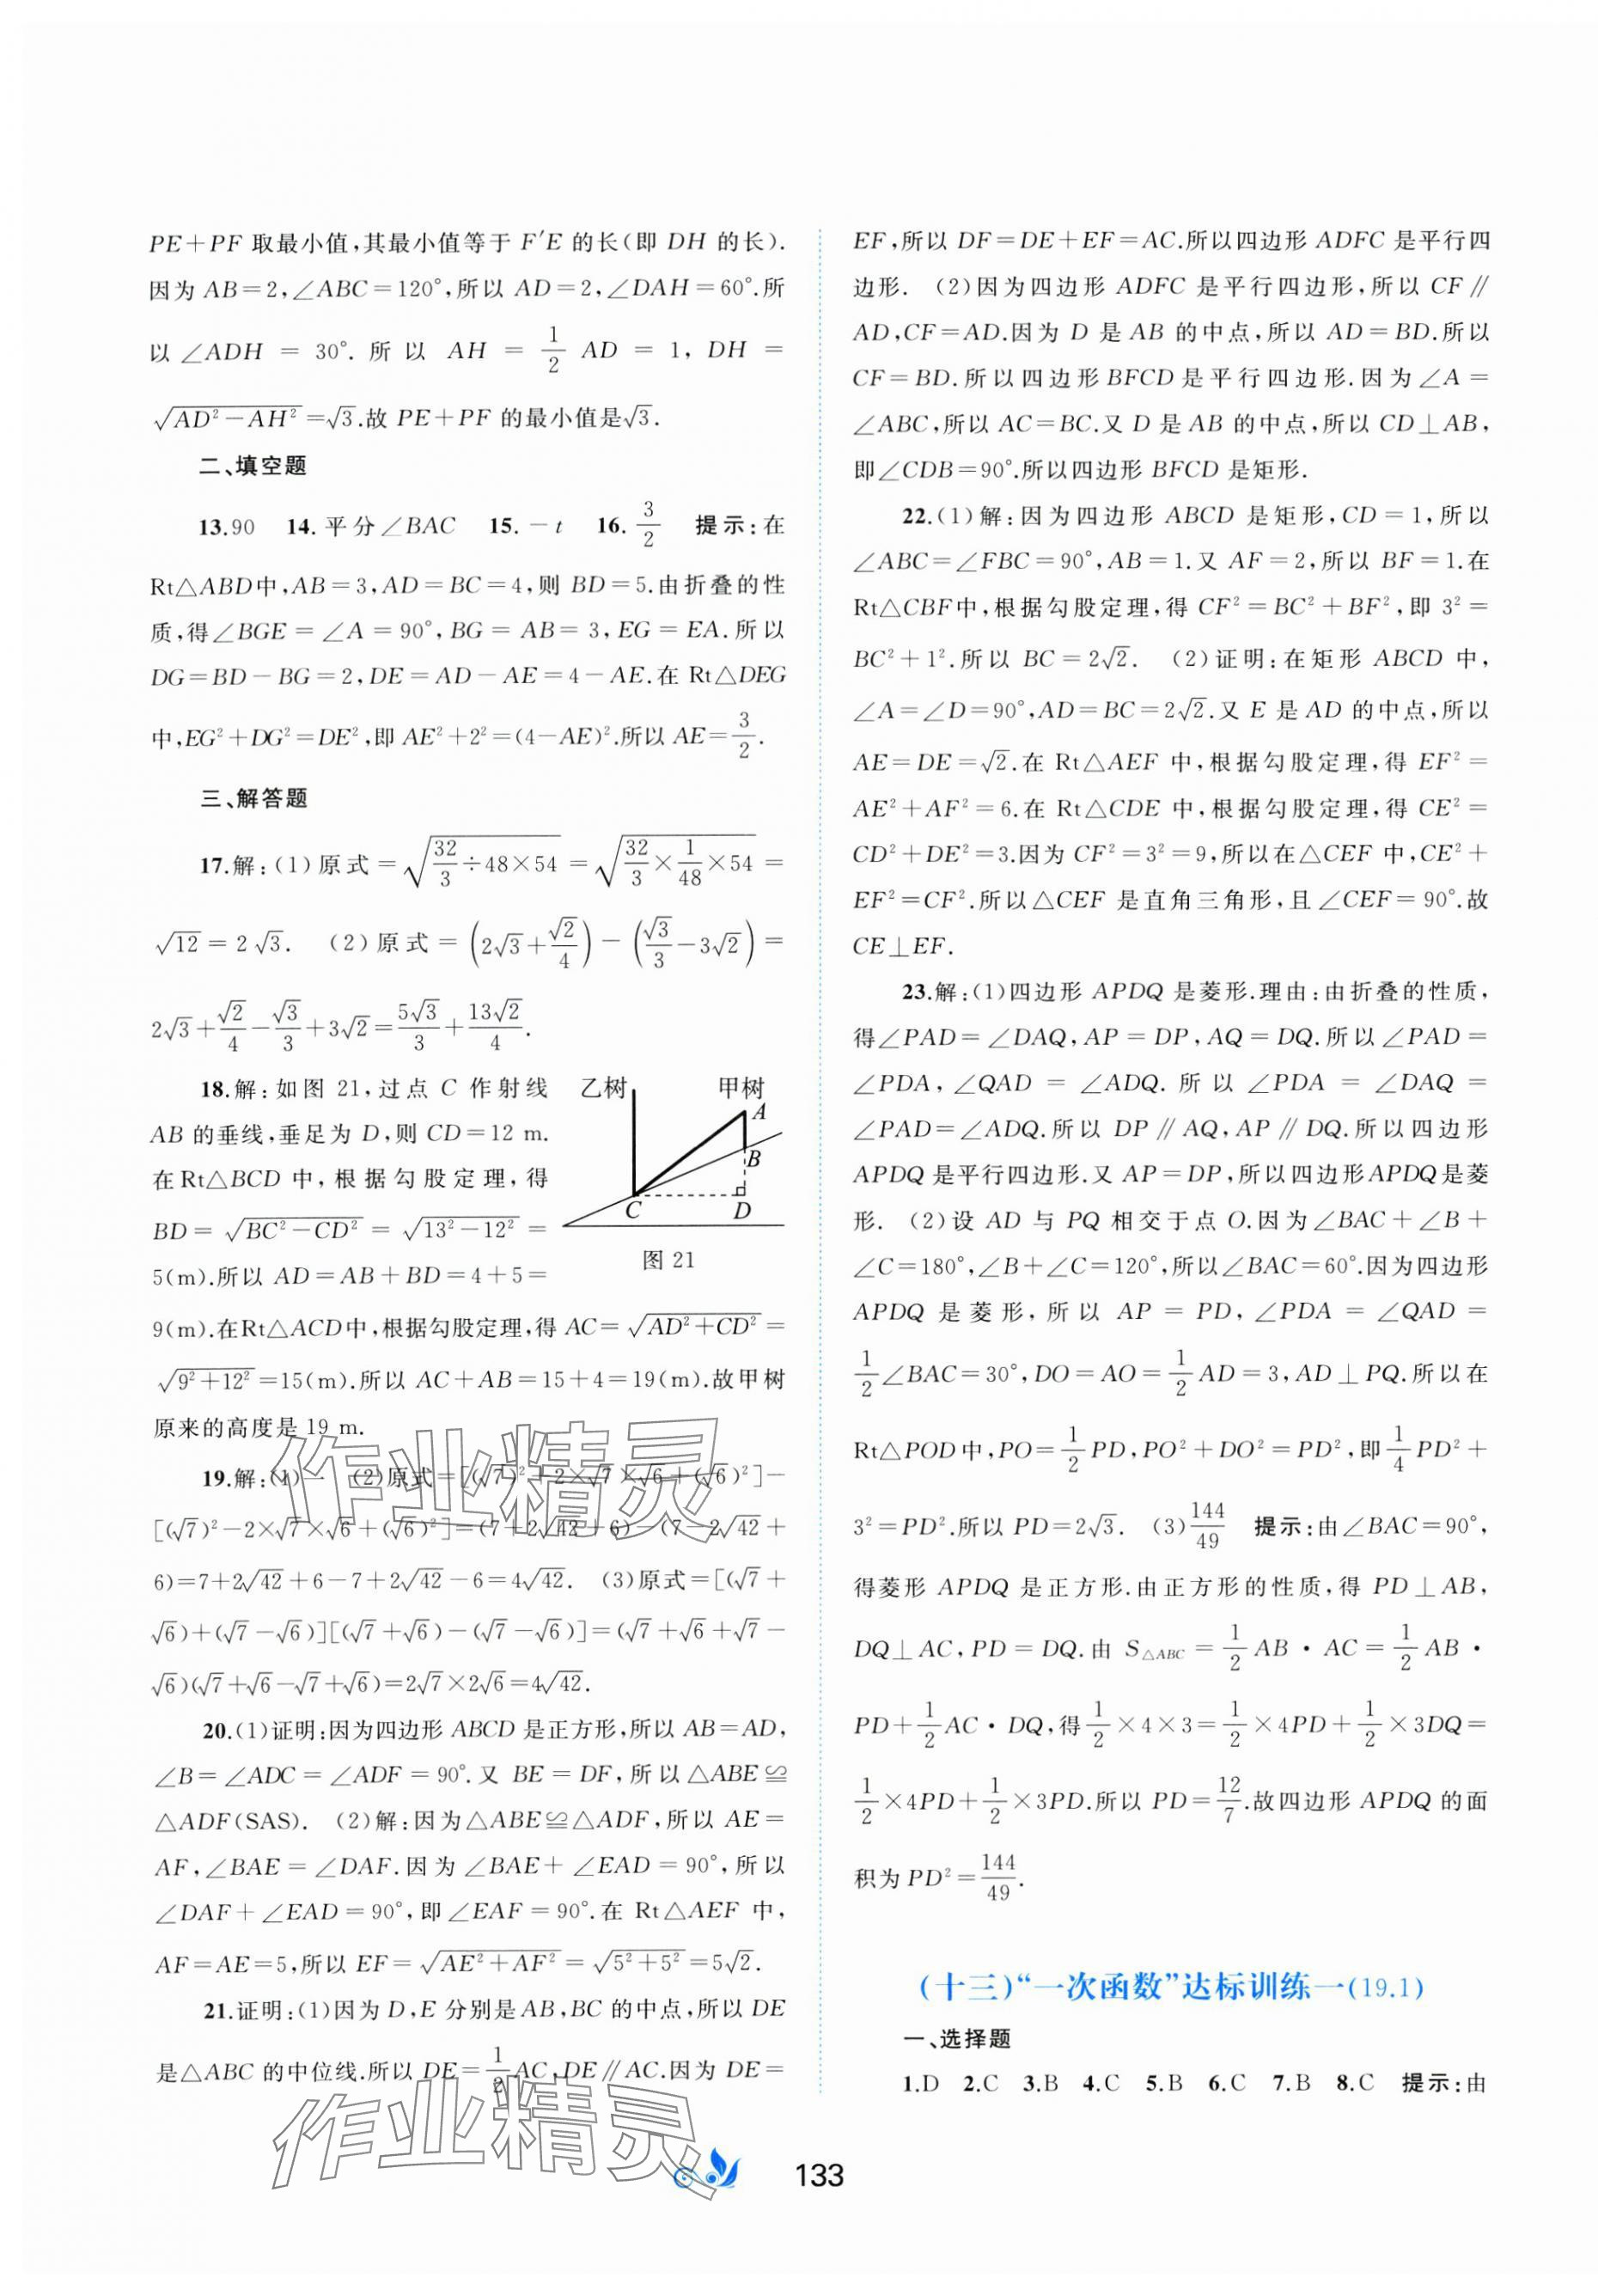 PE+PF 取最小值,其最小值等于 F′E 的长(即 DH 的长).
因为 AB=2,∠ABC=120°,所以 AD=2,∠DAH=60°.所
以 ∠ADH = 30°. 所 以 AH = 1/2 AD = 1, DH =
√(AD²-AH²)=√3.故 PE+PF 的最小值是√3.
二、填空题
13.90 14.平分∠BAC 15.-t 16. 3/2 提示:在
Rt△ABD中,AB=3,AD=BC=4,则 BD=5.由折叠的性
质,得∠BGE=∠A=90°,BG=AB=3,EG=EA.所以
DG=BD-BG=2,DE=AD-AE=4-AE.在 Rt△DEG
中,EG²+DG²=DE²,即 AE²+2²=(4-AE)².所以 AE=3/2.
三、解答题
17.解:(1)原式=√(32/3÷48×54)=√(32/3×1/48×54)=
√12=2√3. (2)原式=(2√3+√2/4)-(√3/3-3√2)=
2√3+√2/4-√3/3+3√2=5√3/3+13√2/4.
18.解:如图 21,过点 C 作射线
AB 的垂线,垂足为 D,则 CD=12 m.
在Rt△BCD 中,根据勾股定理,得
BD=√(BC²-CD²)=√(13²-12²)=
5(m).所以 AD=AB+BD=4+5=
乙树 甲树
A
B
C D
图 21
9(m).在Rt△ACD中,根据勾股定理,得 AC=√(AD²+CD²)=
√(9²+12²)=15(m).所以 AC+AB=15+4=19(m).故甲树
原来的高度是 19 m.
19.解:(1)1 (2)原式=[(√7)²+2×√7×√6+(√6)²]-
[(√7)²-2×√7×√6+(√6)²]=(7+2√42+6)-(7-2√42+
6)=7+2√42+6-7+2√42-6=4√42. (3)原式=[(√7+
√6)+(√7-√6)][(√7+√6)-(√7-√6)]=(√7+√6+√7-
√6)(√7+√6-√7+√6)=2√7×2√6=4√42.
20.(1)证明:因为四边形 ABCD 是正方形,所以 AB=AD,
∠B=∠ADC=∠ADF=90°.又 BE=DF,所以△ABE≌
△ADF(SAS). (2)解:因为△ABE≌△ADF,所以 AE=
AF,∠BAE=∠DAF.因为∠BAE+∠EAD=90°,所以
∠DAF+∠EAD=90°,即∠EAF=90°.在 Rt△AEF 中,
AF=AE=5,所以 EF=√(AE²+AF²)=√(5²+5²)=5√2.
21.证明:(1)因为 D,E 分别是AB,BC 的中点,所以 DE
是△ABC 的中位线.所以 DE=1/2AC,DE∥AC.因为 DE=
EF,所以 DF=DE+EF=AC.所以四边形 ADFC 是平行四
边形. (2)因为四边形 ADFC 是平行四边形,所以 CF∥
AD,CF=AD.因为 D 是 AB 的中点,所以 AD=BD.所以
CF=BD.所以四边形BFCD是平行四边形.因为∠A=
∠ABC,所以 AC=BC.又 D 是 AB 的中点,所以 CD⊥AB,
即∠CDB=90°.所以四边形 BFCD 是矩形.
22.(1)解:因为四边形 ABCD 是矩形,CD=1,所以
∠ABC=∠FBC=90°,AB=1.又 AF=2,所以 BF=1.在
Rt△CBF中,根据勾股定理,得 CF²=BC²+BF²,即 3²=
BC²+1².所以 BC=2√2. (2)证明:在矩形 ABCD 中,
∠A=∠D=90°,AD=BC=2√2.又 E 是 AD 的中点,所以
AE=DE=√2.在 Rt△AEF 中,根据勾股定理,得 EF²=
AE²+AF²=6.在 Rt△CDE 中,根据勾股定理,得 CE²=
CD²+DE²=3.因为 CF²=3²=9,所以在△CEF 中,CE²+
EF²=CF².所以△CEF 是直角三角形,且∠CEF=90°.故
CE⊥EF.
23.解:(1)四边形 APDQ 是菱形.理由:由折叠的性质,
得∠PAD=∠DAQ,AP=DP,AQ=DQ.所以∠PAD=
∠PDA,∠QAD=∠ADQ.所以∠PDA=∠DAQ=
∠PAD=∠ADQ.所以 DP∥AQ,AP∥DQ.所以四边形
APDQ是平行四边形.又 AP=DP,所以四边形APDQ是菱
形. (2)设 AD 与 PQ 相交于点 O.因为∠BAC+∠B+
∠C=180°,∠B+∠C=120°,所以∠BAC=60°.因为四边形
APDQ 是菱形,所以 AP=PD,∠PDA=∠QAD=
1/2∠BAC=30°,DO=AO=1/2AD=3,AD⊥PQ.所以在
Rt△POD中,PO=1/2PD,PO²+DO²=PD²,即1/4PD²+
3²=PD².所以 PD=2√3. (3)144/49 提示:由∠BAC=90°,
得菱形 APDQ 是正方形.由正方形的性质,得 PD⊥AB,
DQ⊥AC,PD=DQ.由 S△ABC=1/2AB·AC=1/2AB·
PD+1/2AC·DQ,得1/2×4×3=1/2×4PD+1/2×3DQ=
1/2×4PD+1/2×3PD.所以 PD=12/7.故四边形 APDQ 的面
积为 PD²=144/49.
(十三)“一次函数”达标训练一(19.1)
一、选择题
1.D 2.C 3.B 4.C 5.B 6.C 7.B 8.C 提示:由
作业精灵
作业精灵
133